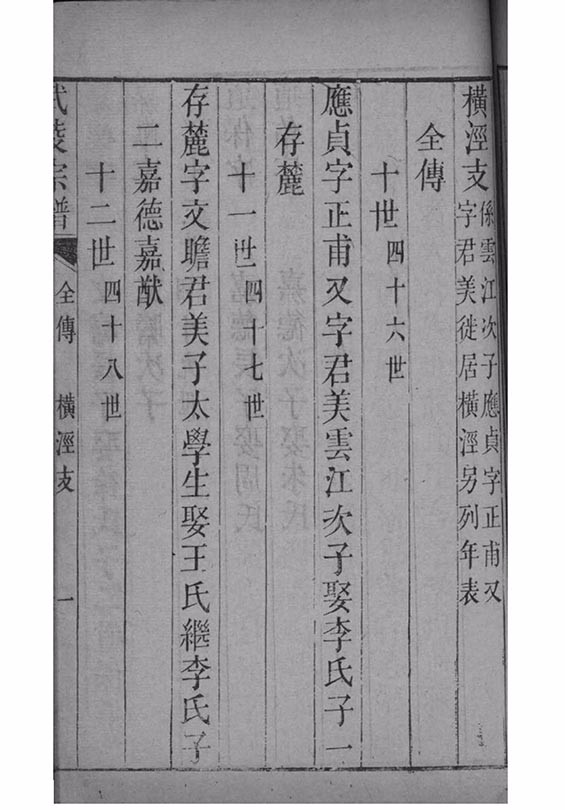 橫涇支係雲江次子應貞字正甫又
字君美徙居橫涇另列年表
全傳
十世四十六世
應貞字正甫又字君美雲江次子娶李氏子一
存麓
十一世四十七世
存麓字文瞻君美子太學生娶王氏繼李氏子
二嘉德嘉猷
十二世四十八世
宗譜
全傳
橫涇支
一